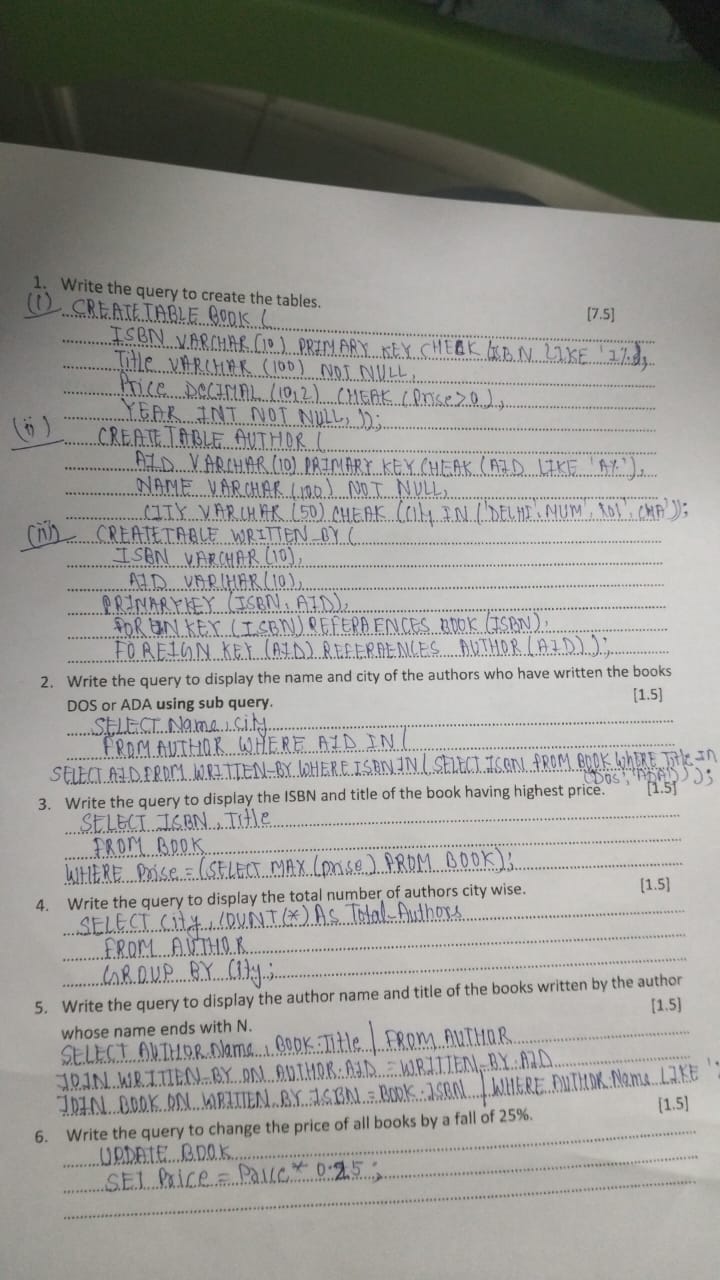 1. Write the query to create the tables. [7.5]
(i) CREATE TABLE BOOK (
ISBN VARCHAR (10) PRIMARY KEY CHECK (ISBN LIKE '1%'),
Title VARCHAR (100) NOT NULL,
Price DECIMAL (10,2) CHEAK (Price>0),
YEAR INT NOT NULL, ));
(ii) CREATE TABLE AUTHOR (
AID VARCHAR (10) PRIMARY KEY CHEAK (AID LIKE 'A%'),
NAME VARCHAR (100) NOT NULL,
CITY VARCHAR (50) CHEAK (City IN ('DELHI', MUM',
(iii) CREATE TABLE WRITTEN_BY (
ISBN VARCHAR (10),
AID VARCHAR (10),
PRIMARY KEY (ISBN, AID),
KEY (ISBN) REFERAENCES BOOK (ISBN),
FOREIGN KEY (AID) REFERAENCES AUTHOR (AID));
2. Write the query to display the name and city of the authors who have written the books
DOS or ADA using sub query. [1.5]
SELECT Name, City
FROM AUTHOR WHERE AID IN (
SELECT AID FROM WRITTEN_BY WHERE ISBN IN (SELECT ISBN FROM BOOK WHERE Title IN
('DOS', 'ADA')));
3. Write the query to display the ISBN and title of the book having highest price. [1.5]
SELECT ISBN, Title
FROM BOOK
WHERE Price = (SELECT MAX (price) FROM BOOK);
4. Write the query to display the total number of authors city wise. [1.5]
SELECT City, COUNT(*) As Total_Authors
FROM AUTHOR
GROUP BY City;
5. Write the query to display the author name and title of the books written by the author
whose name ends with N. [1.5]
SELECT AUTHOR.Name, BOOK.Title | FROM AUTHOR
JOIN WRITTEN_BY ON AUTHOR.AID = WRITTEN_BY.AID
JOIN BOOK ON WRITTEN_BY.ISBN = BOOK.ISBN | WHERE AUTHOR.Name LIKE '
6. Write the query to change the price of all books by a fall of 25%. [1.5]
UPDATE BOOK
SET Price = Price * 0.25;